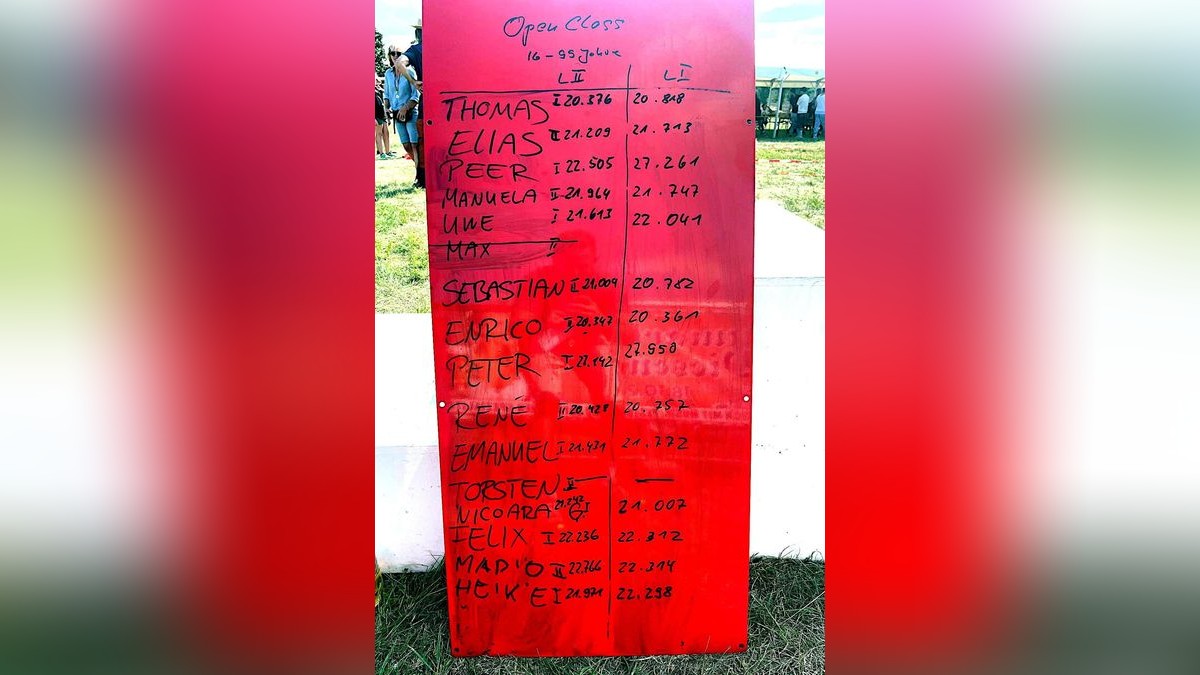 Open Class
16-99 Jahre
L II L I
THOMAS I 20.376 20.818
ELIAS II 21.209 21.713
PEER I 22.505 27.261
MANUELA II 21.964 21.747
UWE I 21.613 22.041
MAX II
SEBASTIAN II 21.009 20.782
ENRICO II 20.347 20.361
PETER I 27.950
RENÉ II 20.428 20.757
EMANUEL I 21.431 21.772
TORSTEN II — —
NICOARA 21.242 I 21.007
FELIX I 22.236 22.312
MADIO II 22.766 22.314
HEIKE I 21.971 22.298